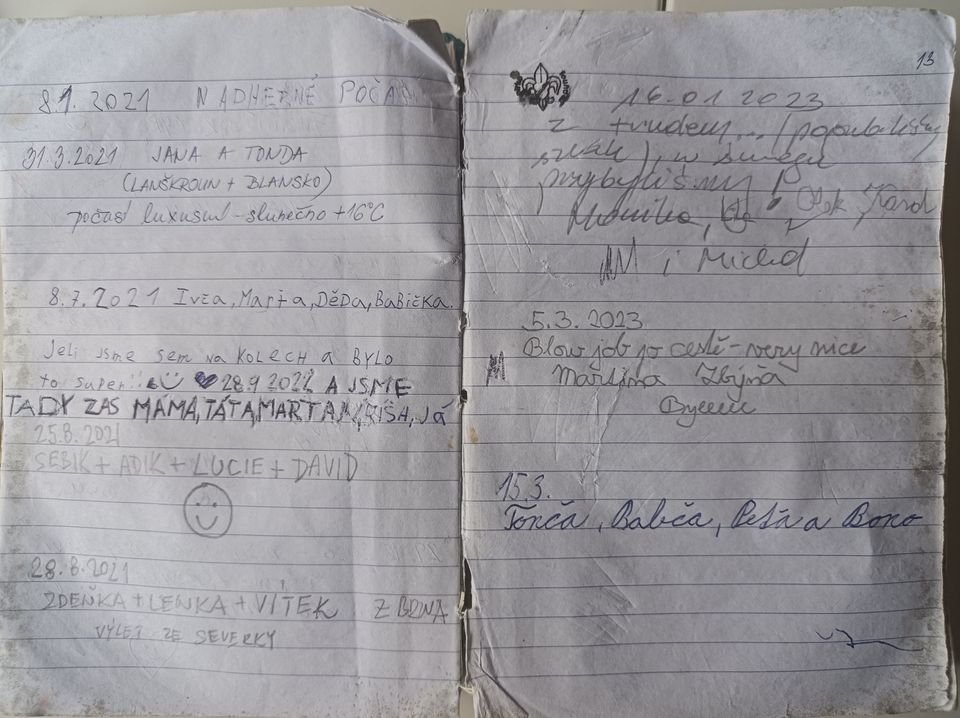 8.1. 2021 NADHERNÉ POČASÍ
31.3.2021 JANA A TONDA
(LANŠKROUN + BLANSKO)
počasí luxusní - slunečno +16°C
8.7.2021 Ivča, Marťa, Děda, Babička.
Jeli jsme sem na KOLECH a BYLO
to super!! 28.9 2022 A JSME
TADY ZAS MÁMA, TÁTA, MARTA, RÍŠA, JÁ
25.8.2021
SEBIK + ADIK + LUCIE + DAVID
28.8.2021
ZDEŇKA + LENKA + VÍTEK Z BRNA
VÝLET ZE SEVERKY
13
16.01 2023
z trudem... (popularisy
), w śniegu
przybyliśmy!
Monika,
i Michał
5.3. 2023
Blow job po cestě - very nice
Martina Zbyňa
15.3.
Tonča, Babča, Peťa a Bono